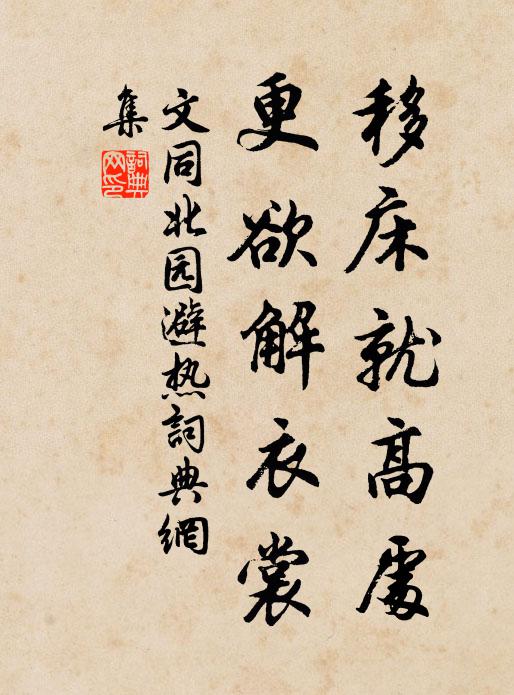 移床就高處
更欲解衣裳
文同北园避热詞典網
集
詞典
网印